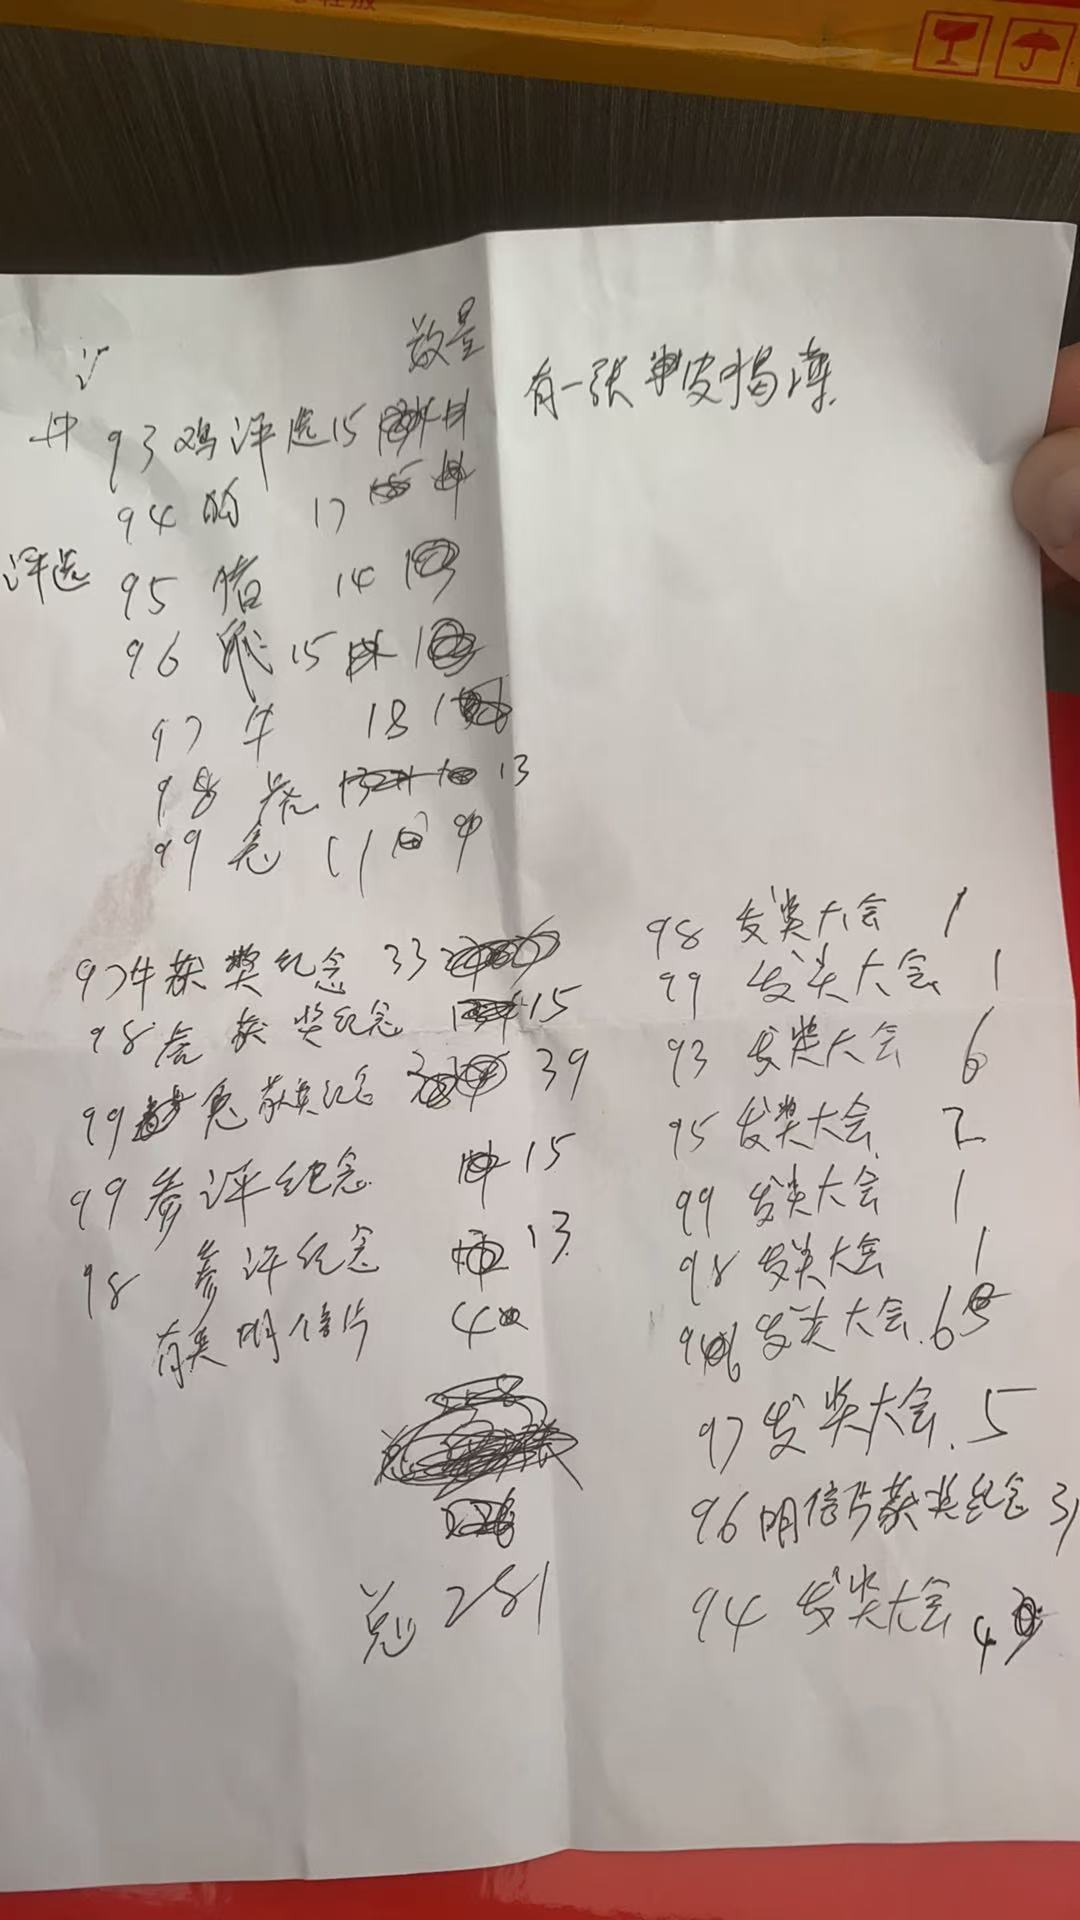 数量
有一张
93 鸡评选 15
94 狗 17
评选
95 猪 14
96 鼠 15
97 牛 18
98 虎 13
99 兔 11
97牛获奖纪念 33
98虎获奖纪念 15
99 兔获奖纪念 39
99 参评纪念 15
98 参评纪念 13
有奖明信片 4
总 281
98 发奖大会 1
99 发奖大会 1
93 发奖大会 6
95 发奖大会 2
99 发奖大会 1
98 发奖大会 1
发奖大会 6
97 发奖大会 5
96 明信片获奖纪念 31
94 发奖大会 4